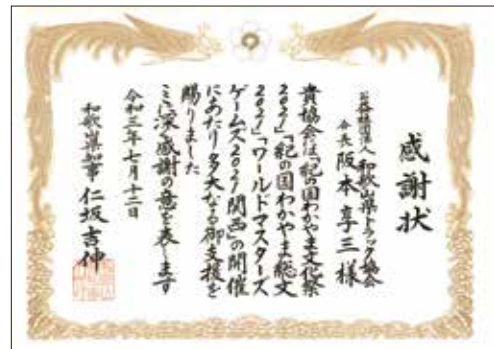 感謝状
公益社団法人 和歌山県トラック協会
会長 阪本享三様
貴協会は「紀の国わかやま文化祭
2021」「紀の国わかやま総文
2021」「ワールドマスターズ
ゲームズ2021関西」の開催
にあたり多大なる御支援を
賜りました
ここに深く感謝の意を表します
令和三年七月十二日
和歌山県知事 仁坂吉伸